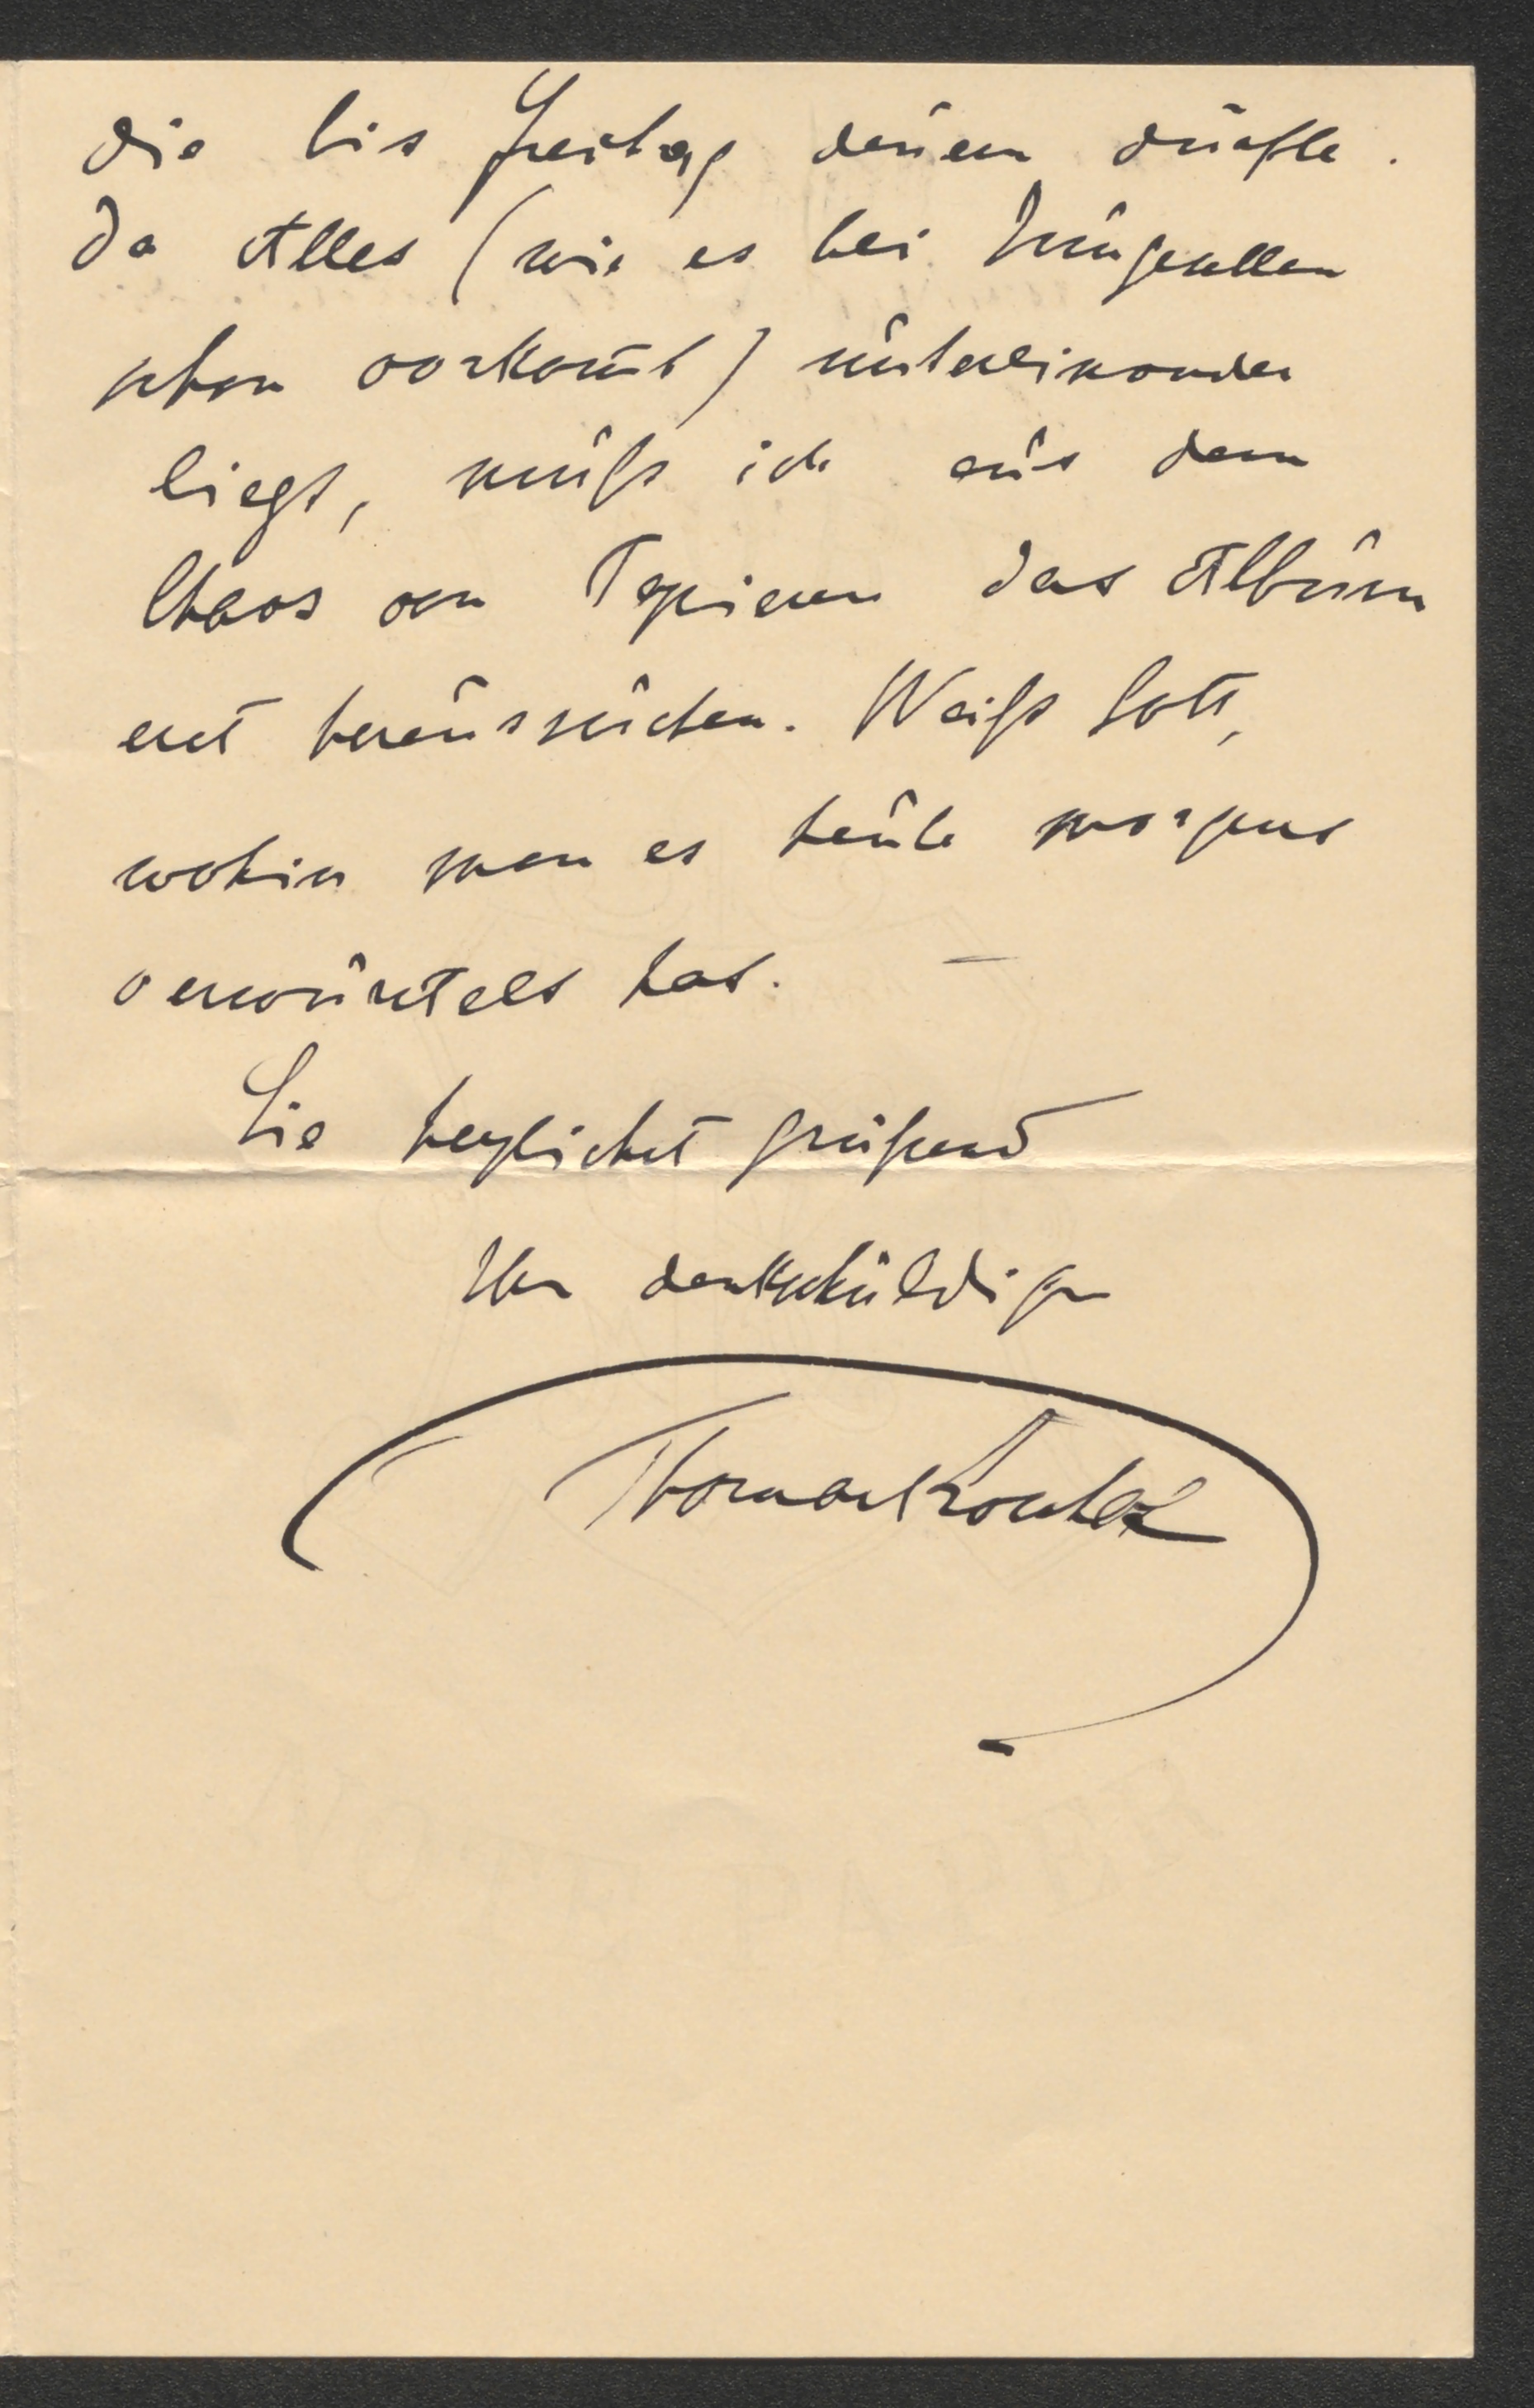 die bis Freitag dauern dürfte.
Da Alles (wie es bei Junggesellen
schon vorkom̅t) untereinander
liegt, muß ich aus dem
Chaos von Papieren das Album
erst heraussuchen. Weiß Gott,
wohin man es heute morgens
verwurstelt hat. —
Sie herzlichst grüßend
Ihr dankschuldiger